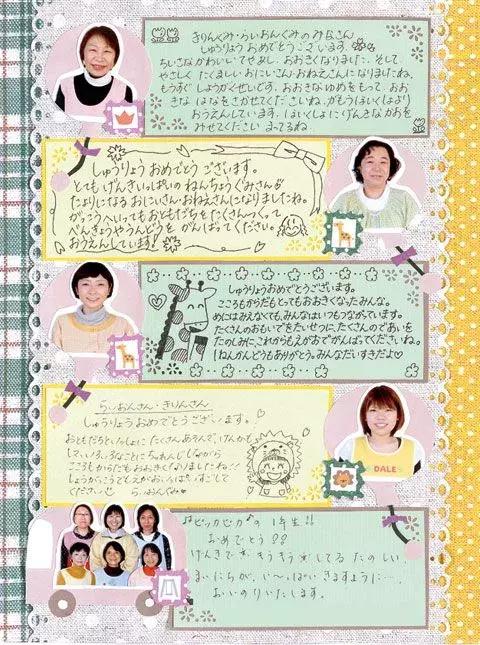 きりんぐみ・らいおんぐみのみなさん
しゅうりょう おめでとうございます。
ちいさな かわいい てをあし、おおきくなりました。そして
やさしく たくましい おにいさん・おねえさんになりましたね。
もうすぐ しょうがくせいです。おおきなゆめをもって、おお
きな はなをさかせてくださいね。がもうほいくえんより
おうえんしています。ほいくしょにげんきなかおを
みせてください まってるね。
しゅうりょう おめでとう ございます。
とても げんきいっぱいの ねんちょうぐみさん
たよりになる おにいさん・おねえさんになりましたね。
がっこうへいっても おともだちを たくさんつくって
べんきょうやうんどうを がんばってください。
おうえんしています!
しゅうりょうおめでとうございます。
こころもからだもとってもおおきくなったみんな。
めにはみえなくても、みんなはいつもつながっています。
たくさんのおもいでをたいせつに、たくさんのであいを
たのしみに、これからもえがおでがんばってくださいね。
1ねんかんどうもありがとう。みんなだいすきだよ♡
らいおんさん・きりんさん
しゅうりょうおめでとうございます!
おともだちといっしょに たくさんあそんで、けんかも
して、いろんなことに ちゃれんじしながら
こころもからだもおおきくなりましたね!!
しょうがっこうでもえがおいっぱいですごして
くださいね らいおんぐみ
DALE
♪ピッカピカ♪の1年生!!
おめでとう
げんきで きらきらしてる たのしい
まいにちが、いーっぱい きますように…。
おいのりいたします。